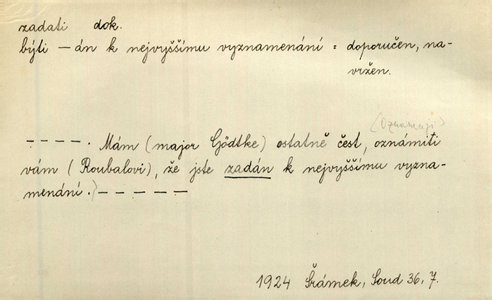 zadati dok.
býti — án k nejvyššímu vyznamenání = doporučen, na-
vržen.
(Oznamuji)
– – – –. Mám (major Gödtke) ostatně čest, oznámiti
vám (Roubalovi), že jste zadán k nejvyššímu vyzna-
menání.) – – – – –
1924 Šrámek, Soud 36, 7.